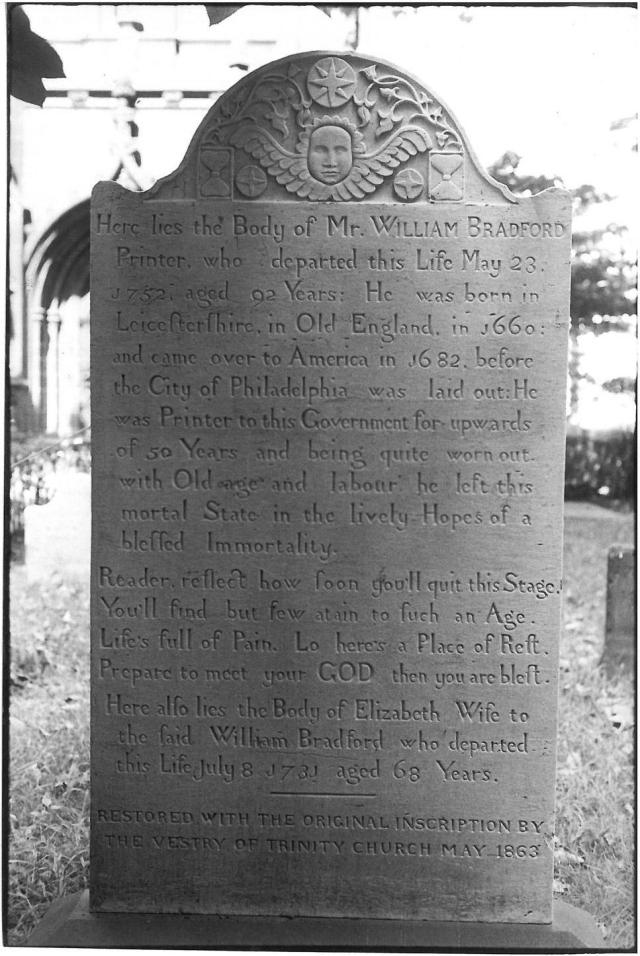 Here lies the Body of Mr. WILLIAM BRADFORD
Printer, who departed this Life May 23,
1752, aged 92 Years: He was born in
Leiceſterſhire, in Old England, in 1660:
and came over to America in 1682, before
the City of Philadelphia was laid out: He
was Printer to this Government for upwards
of 50 Years and being quite worn out
with Old age and labour, he left this
mortal State in the lively Hopes of a
bleſſed Immortality.
Reader, reflect how ſoon you'll quit this Stage.
You'll find but few atain to ſuch an Age.
Life's full of Pain. Lo here's a Place of Reſt.
Prepare to meet your GOD then you are bleſt.
Here alſo lies the Body of Elizabeth Wife to
the ſaid William Bradford who departed
this Life July 8 1731 aged 68 Years.
RESTORED, WITH THE ORIGINAL INSCRIPTION BY
THE VESTRY OF TRINITY CHURCH MAY 1863